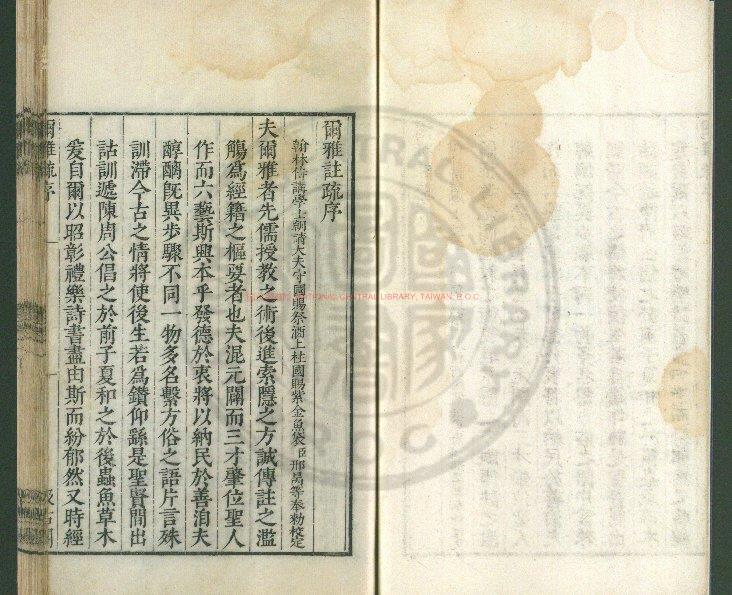 爾雅註疏序
翰林侍講學士朝請大夫守國賜祭酒上柱國賜紫金魚袋臣邢昺等奉勅校定
夫爾雅者先儒授教之術後進索隱之方誠傳註之濫
觴為經籍之樞要者也夫混元闢而三才肇位聖人
作而六藝斯興本乎發德於衷將以納民於善洎夫
醇醨旣異步驟不同一物多名繫方俗之語片言殊
訓滯今古之情將使後生若為鑽仰繇是聖賢間出
詁訓遞陳周公倡之於前子夏和之於後蟲魚草木
爰自爾以昭彰禮樂詩書盡由斯而紛郁然又時經
爾雅疏序
汲古閣
NATIONAL CENTRAL LIBRARY, TAIWAN, R.O.C